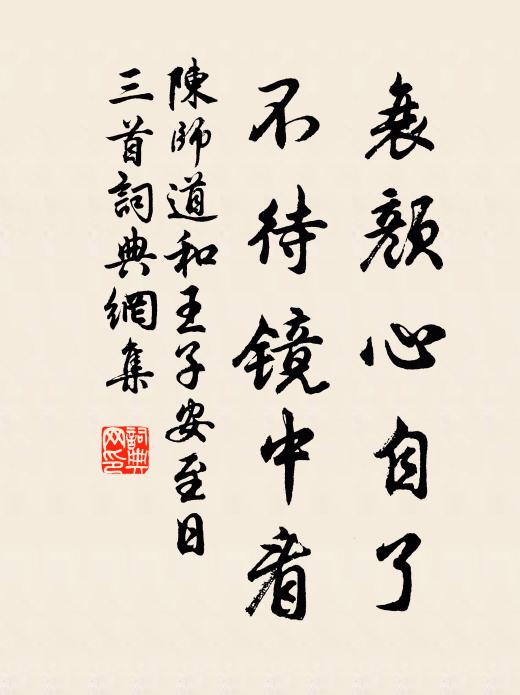 衰顔心自了
不待镜中看
陳師道和王子安至日
三首詞典網集
詞典
网印